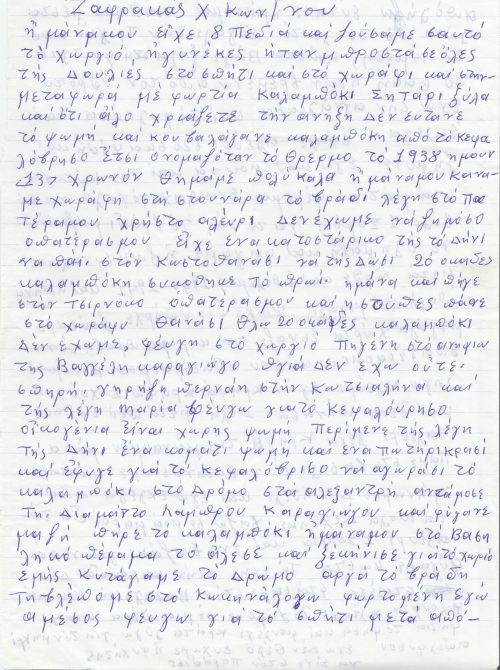 Σαφρακας Χ Κων/νου
ἤ μάναμου εἶχε 8 Πεδιά και ζούσαμε σαυτό
το χωργιό, ἤ γυνέκες ἤταν μπροστά σε όλες
της Δουλιες στο σπήτι και στο χωράφι και στην
μεταφωρά με φωρτία Καλαμπόκι Σητάρι ξύλα
και ότι άλο χριάζετε την άνηξη Δεν έφτανε
το ψωμη και κουβαλάγανε καλαμπόκη από το κεφα
λόβρησο έτσι ονομαζόταν το Θρέρμο το 1938 ημουν
13 χρωνόν θημάμε πολύ καλα ἤ μάναμου καινα
με χωράφη στη στουνάρα το βράδι λέγη στο Πα
τέραμου χρήστο αλέυρι Δεν έχωμε να ζημόσο
ο πατέρασμου εἶχε ένα κατοστάρικο της το Δήνι
να πάι στον Κωστοθανάσι να της Δώσι 20 οκαδες
καλαμπόκη συκόθηκε το πρωι ημάνα και πήγε
στον τσιρνόκο ο πατέρασμου και η στούπες πάσε
στο χωράφι Θανάσι θλω 20 οκάδες καλαμπόκι
Δέν έχωμε, φευγη στο χωργιό Πηγένη στο ανηψιω
της Βαγγέλη καραγιάγο πγιά Δεν έχω ούτε
σπηρή. γηρήζη περνάη στην Κωτσιαλήνα και
της λέγη μαρία φευγω για το Κεφαλόυρησο
οἶκογένια εἶναι χωρης ψωμή Περίμενε της λέγη
της Δήνι ένα κομάτι ψωμή και ένα πατηρι κρασί
και έφυγε για το κεφαλόβρισο να αγωράσι το
καλαμπόκι στο Δρόμο στα αλεξαντρη αντάμοσε
τη. Διαμάντο Λαμπρου Καραγιάγου και φύγανε
μαζη πηρε το καλαμπόκι ἤ μάναμου στο Βαση
ληκο πέραμα το άλεσε και ξεκήνισε για το χωριό
εμης Κυτάγαμε το Δρώμο αργα το βράδη
τη βλέπομε στο Κωκηνάλογω φωρτομένη εγω
αμέσος φευγω για το σπήτι μετά από-